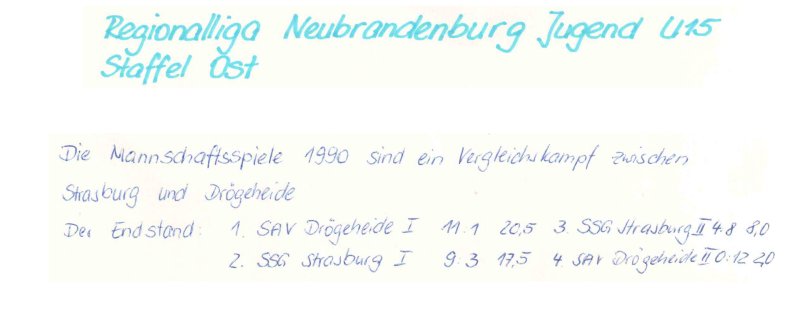 Regionalliga Neubrandenburg Jugend U15
Staffel Ost
Die Mannschaftsspiele 1990 sind ein Vergleichskampf zwischen
Strasburg und Drögeheide
Der Endstand: 1. SAV Drögeheide I 11:1 20,5 3. SSG Strasburg II 4:8 8,0
2. SSG Strasburg I 9:3 17,5 4. SAV Drögeheide II 0:12 2,0